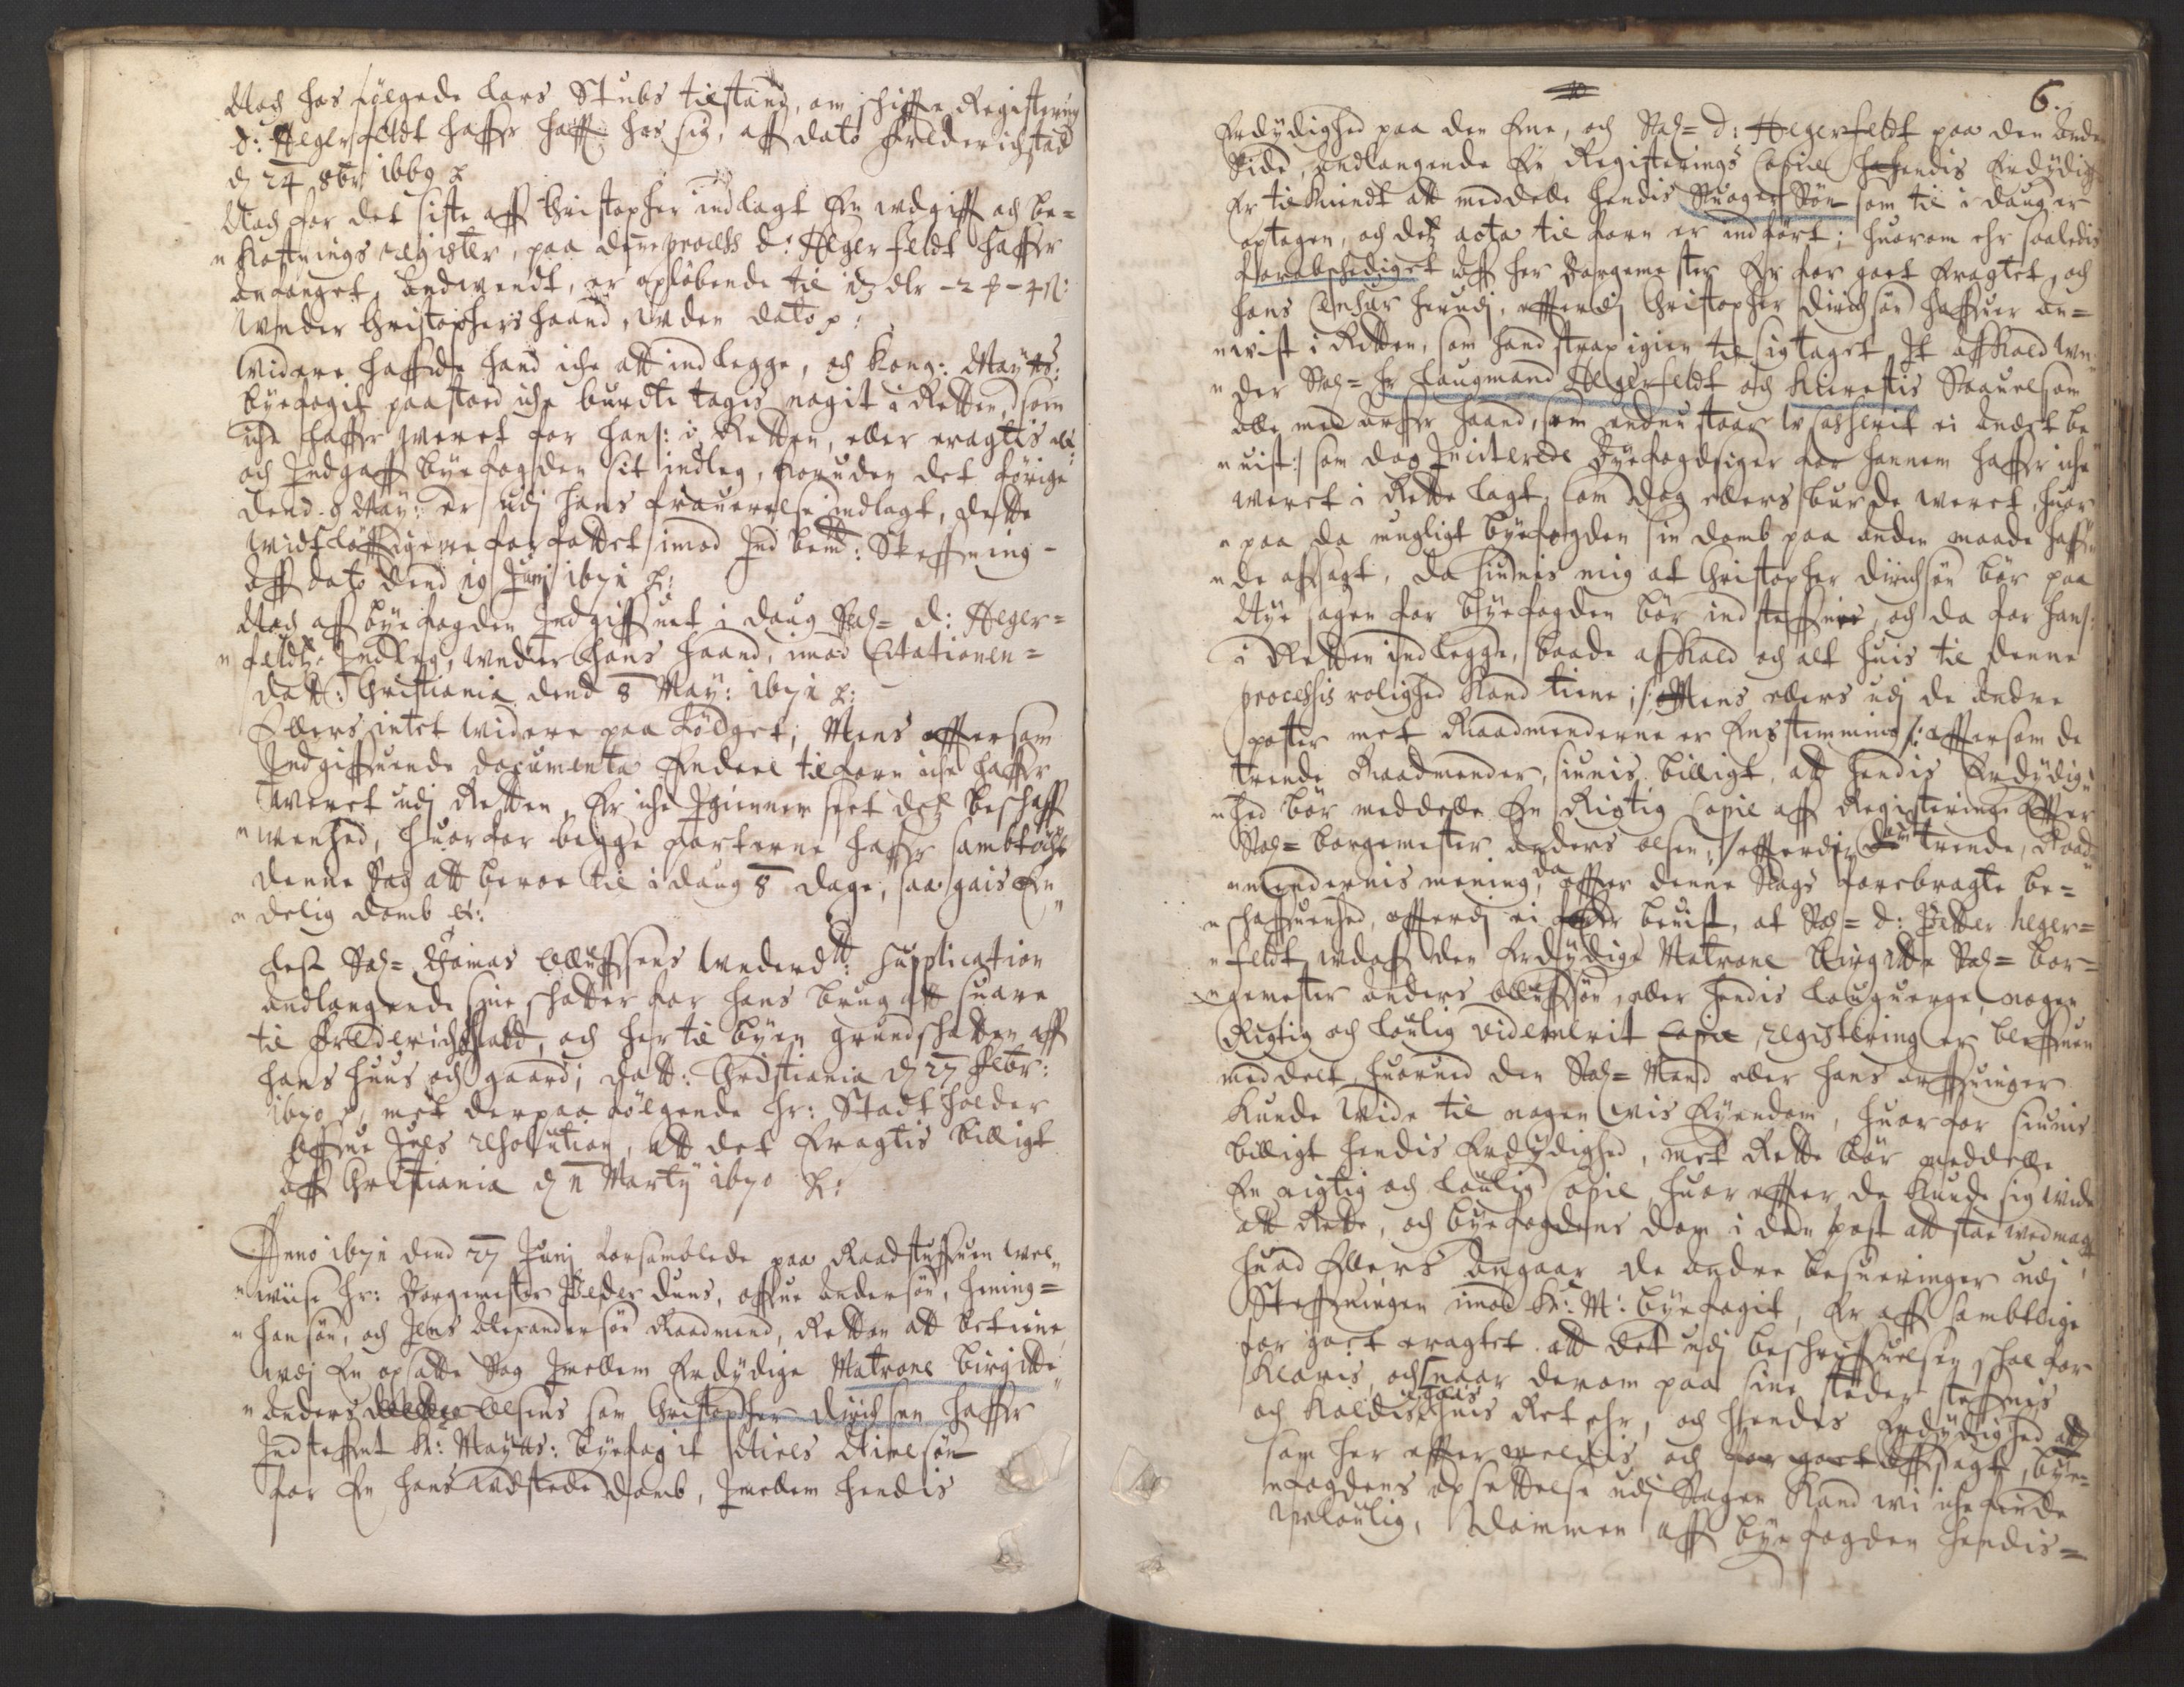 Noch hos følgede Lars Stubs tilstand, om schiffte Registering
d: Hegerfeldt haffr hafft hos sig, aff dato Frederichstad
d 24 8br 1669 p
Noch for det siste aff Christopher indlagt En udgifft och be=
kostnings register, paa denne process d: Hegerfeldt haffr
anvendt, er opløbende til
Under Christophers haand, Uden dato p:
Widere haffde hand iche att indlegge, och Kong: Maytts:
byefogit paastoed iche burdte tages nogit i Retten, som
iche haffr weret for hans: i Retten, eller eragtis
och Indgaff byefogden sit indleg, foruden det förige
dend 8 May: er udj hans frauerelse indlagt, dette
widtløfftigere forfattet imod Ind bemt: Steffning
aff dato dend 19 Junj 1671 p:
Noch aff byefogden Indgiffuet i daug Sal= d: Heger=
feldtz Indleg, under hans haand, imod Citationen=
datt: Christiania dend 8 May: 1671 p:
Ellers intet widere paa födget, Mens effter som
Indgiffuende documenta Endeel tilforn iche haffr
weret udj Retten, Er iche Igiennem seet detz beschaff
wenhed, huorfor begge parterne haffr sambtöcht
denne Sag att beroe til i daug 8 dage, saa gais En
delig domb
Lest Sal= Thomas Elluffsens underd: Supplication
andlangende sine schatter for hans brug att suare
til Frederichstad, och her til byen grundschatten aff
hans huus och gaard; datt: Christiania d 27 Febr:
1670 p, met derpaa følgende Hr: Stadtholder
Offue Juels resolution, att det Eragtis billigt
aff Christiania d 11 Marty 1670 p:
Anno 1671 dend 27 Junj forsamblede paa Raadstuffuen wel
wiise Hr: Borgemester Peder Duns, Offue Andersøn, Heming=
hansøn, och Jens Alexandersøn Raadmend, Retten att betiene
udj En opsatte Sag Imellem Erdydige Matrone Birgitte
Anders Olsens som Christopher Dirichsen haffr
Indsteffnet K: Maytts: byefogit Niels Nielsøn
for En hans udstede domb, Imellem hendis
6.
Erdydighed paa den Ene, och Sal= d: Hegerfeldt paa den anden
Side, andlangende Er Registerings Copie hendis Erdydighed
Er tilkiendt att meddele hendis Suoger Søn som til i daug er
optagen, och detz acta til forn er indført; huorom ehr saaledis
Forabschediget aff her Borgemester Er for goet Eragtet, och
hans herudj, effterdj Christopher Dirichsøn haffuer an=
wist i Retten, som hand strax igien til sig taget It affkald un
der Sal= Hr Laugmand Hegerfeldt och Kierestis Saauelsom
alle med arffr haand, som endnu staar ei andet be
uist: som dog Byefogdsiger for hannem haffr iche
weret i Rette lagt, som dog ellers burde weret, huor
paa da mugligt byefogden sin domb paa anden maade haffu
de affsagt, da siunis mig at Christopher Dirichsøn bør paa
Nye sagen for byefogden bør indsteffnes, och da for hans:
i Retten indlegge, baade affkald och alt huis til denne
processis rolighed kand tiene; /: Mens ellers udj de andre
poster met Raadmenderne er Enstemmig /: effter som de
trende Raadmender, siunis billigt, att hendis Erdydig
hed bör meddelle En Rigtig Copie aff Registering effter
Sal= borgemester anders olsen, /: effterdj dom trende, Raad
mendernis mening, da effter denne Sags forebragte be=
schaffuenhed, effterdj ei beuist, at Sal= d: Petter Heger=
feldt udaff den Erdydige Matrone Birgitte Sal= Bor=
gemester Anders Olluffsøn, eller hendis lauguerge, nogen
Rigtig och loulig videmerit Copie registering er bleffuen
meddelt, huorued den Sal= Mand eller hans arffuinger
kunde wide til nogen wis Eyendom, huorfor siunis
billigt hendis Erdydighed, met Rette bør meddelle
En rigtig och loulig Copie huor effter de kunde sig wide
att Rette, och byefogdens dom i den post att staa wed magt
huad Ellers angaar de andre besueringer udj
Steffningen imod K: M: byefogit, Er aff sambtlige
for goet eragtet att det udj beschriffuelsen, schal for
klaris, och naar derom paa sine steder steffnis
och kaldis, gaas huis Ret ehr, och hendis Erdydighed att
som her effter meldis och for goet affsagt, bye=
fogdens opsettelse udj Sagen kand wi iche finde
uloulig, dommen aff byefogden hendis=